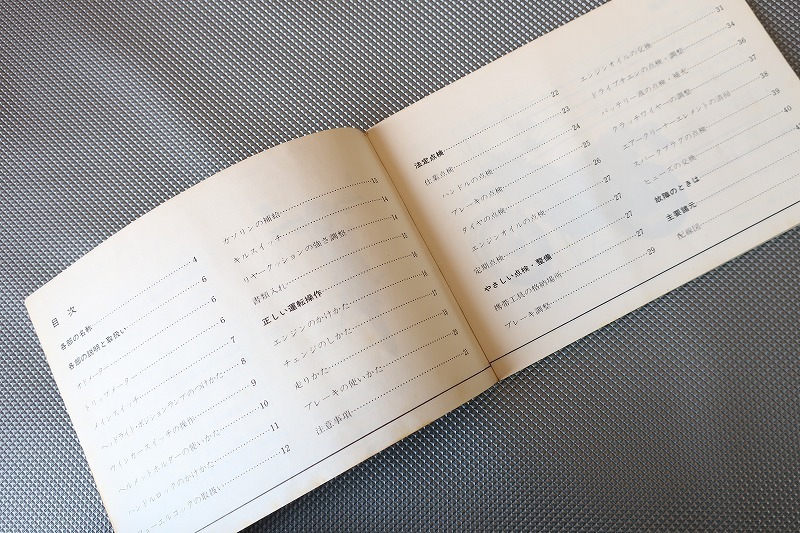 目次
各部の名称 4
各部の説明と取扱い 6
オドメーター 6
トリップメーター 6
メインスイッチ 7
ヘッドライト・ポジションランプのつけかた 8
ウインカースイッチの操作 9
ヘルメットホルダーの使いかた 10
ハンドルロックのかけかた 11
フューエルコックの取扱い 12
ガソリンの補給 13
キルスイッチ 14
リヤークッションの強さ調整 14
書類入れ 15
正しい運転操作 16
エンジンのかけかた 16
チェンジのしかた 17
走りかた
ブレーキの使いかた
注意事項 21
法定点検 22
仕業点検 23
ハンドルの点検 24
ブレーキの点検 25
タイヤの点検 26
エンジンオイルの点検 27
定期点検 27
やさしい点検・整備 27
携帯工具の格納場所 27
ブレーキ調整 29
エンジンオイルの交換 31
ドライブチエンの点検・調整 34
バッテリー液の点検・補充 36
クラッチワイヤーの調整 37
エアークリーナーエレメントの清掃 38
スパークプラグの点検 39
ヒューズの交換 40
故障のときは 40
主要諸元
配線図